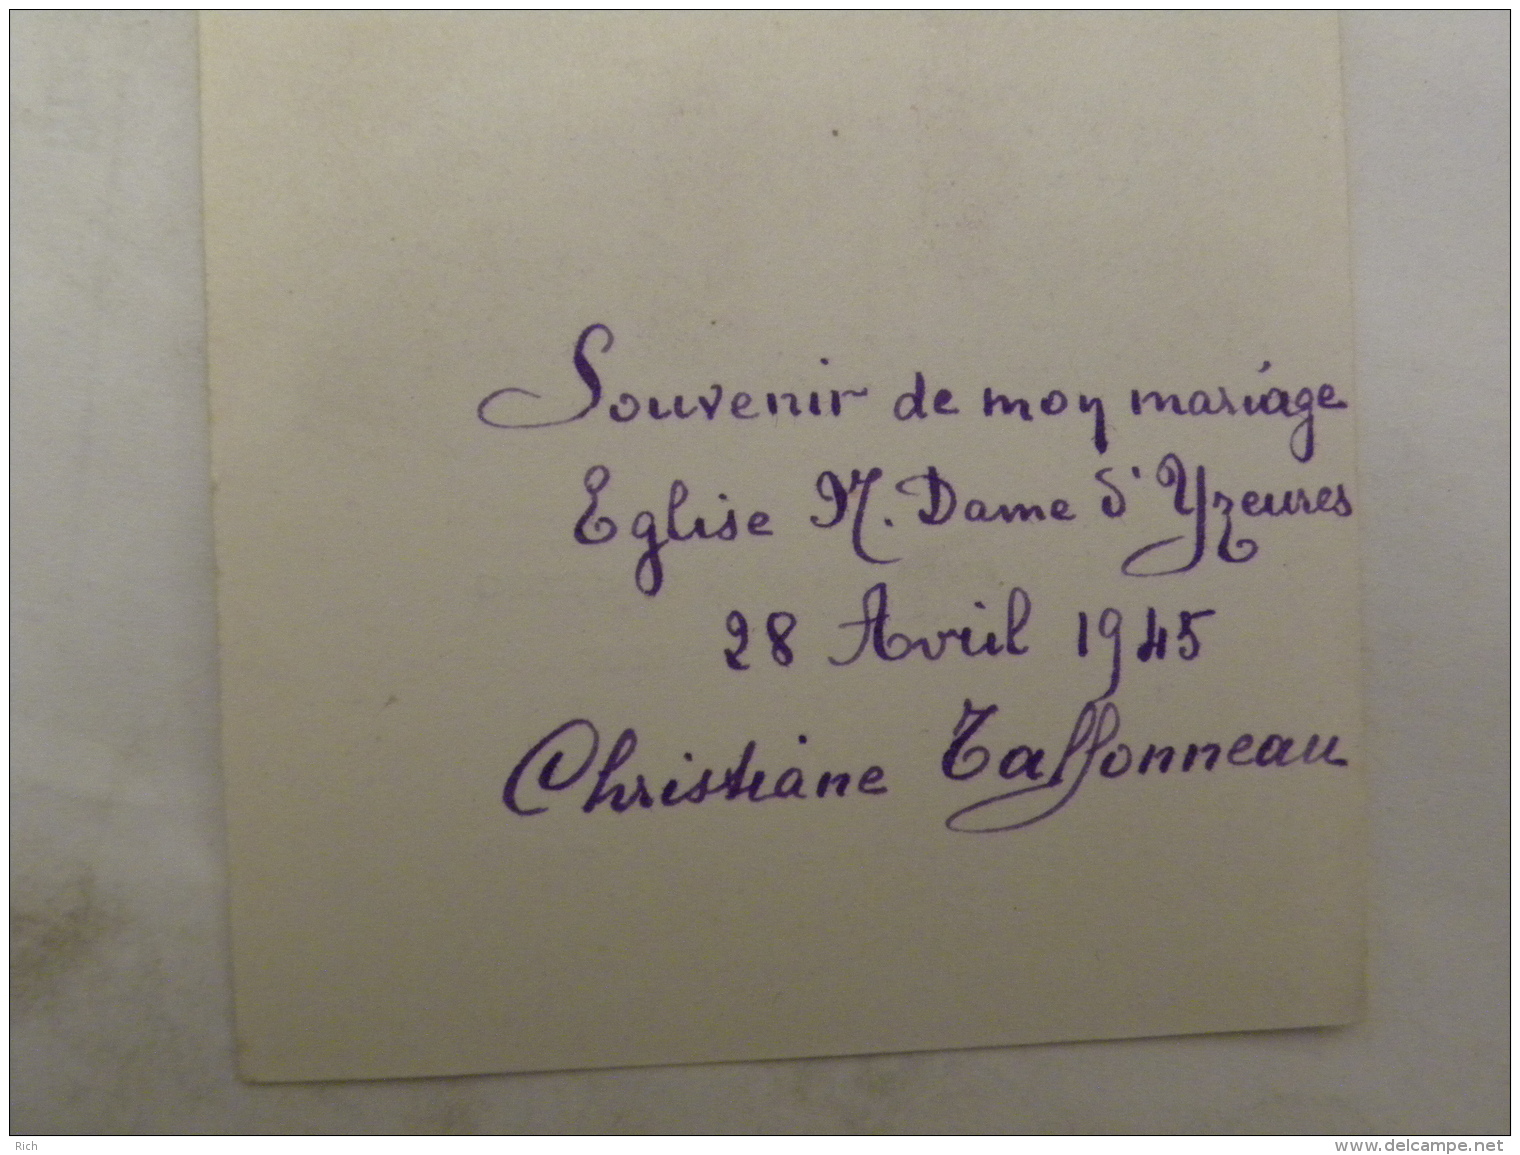 Souvenir de mon mariage
Eglise N. Dame d'Yzeures
28 Avril 1945
Christiane Taffonneau
Rich
www.delcampe.net